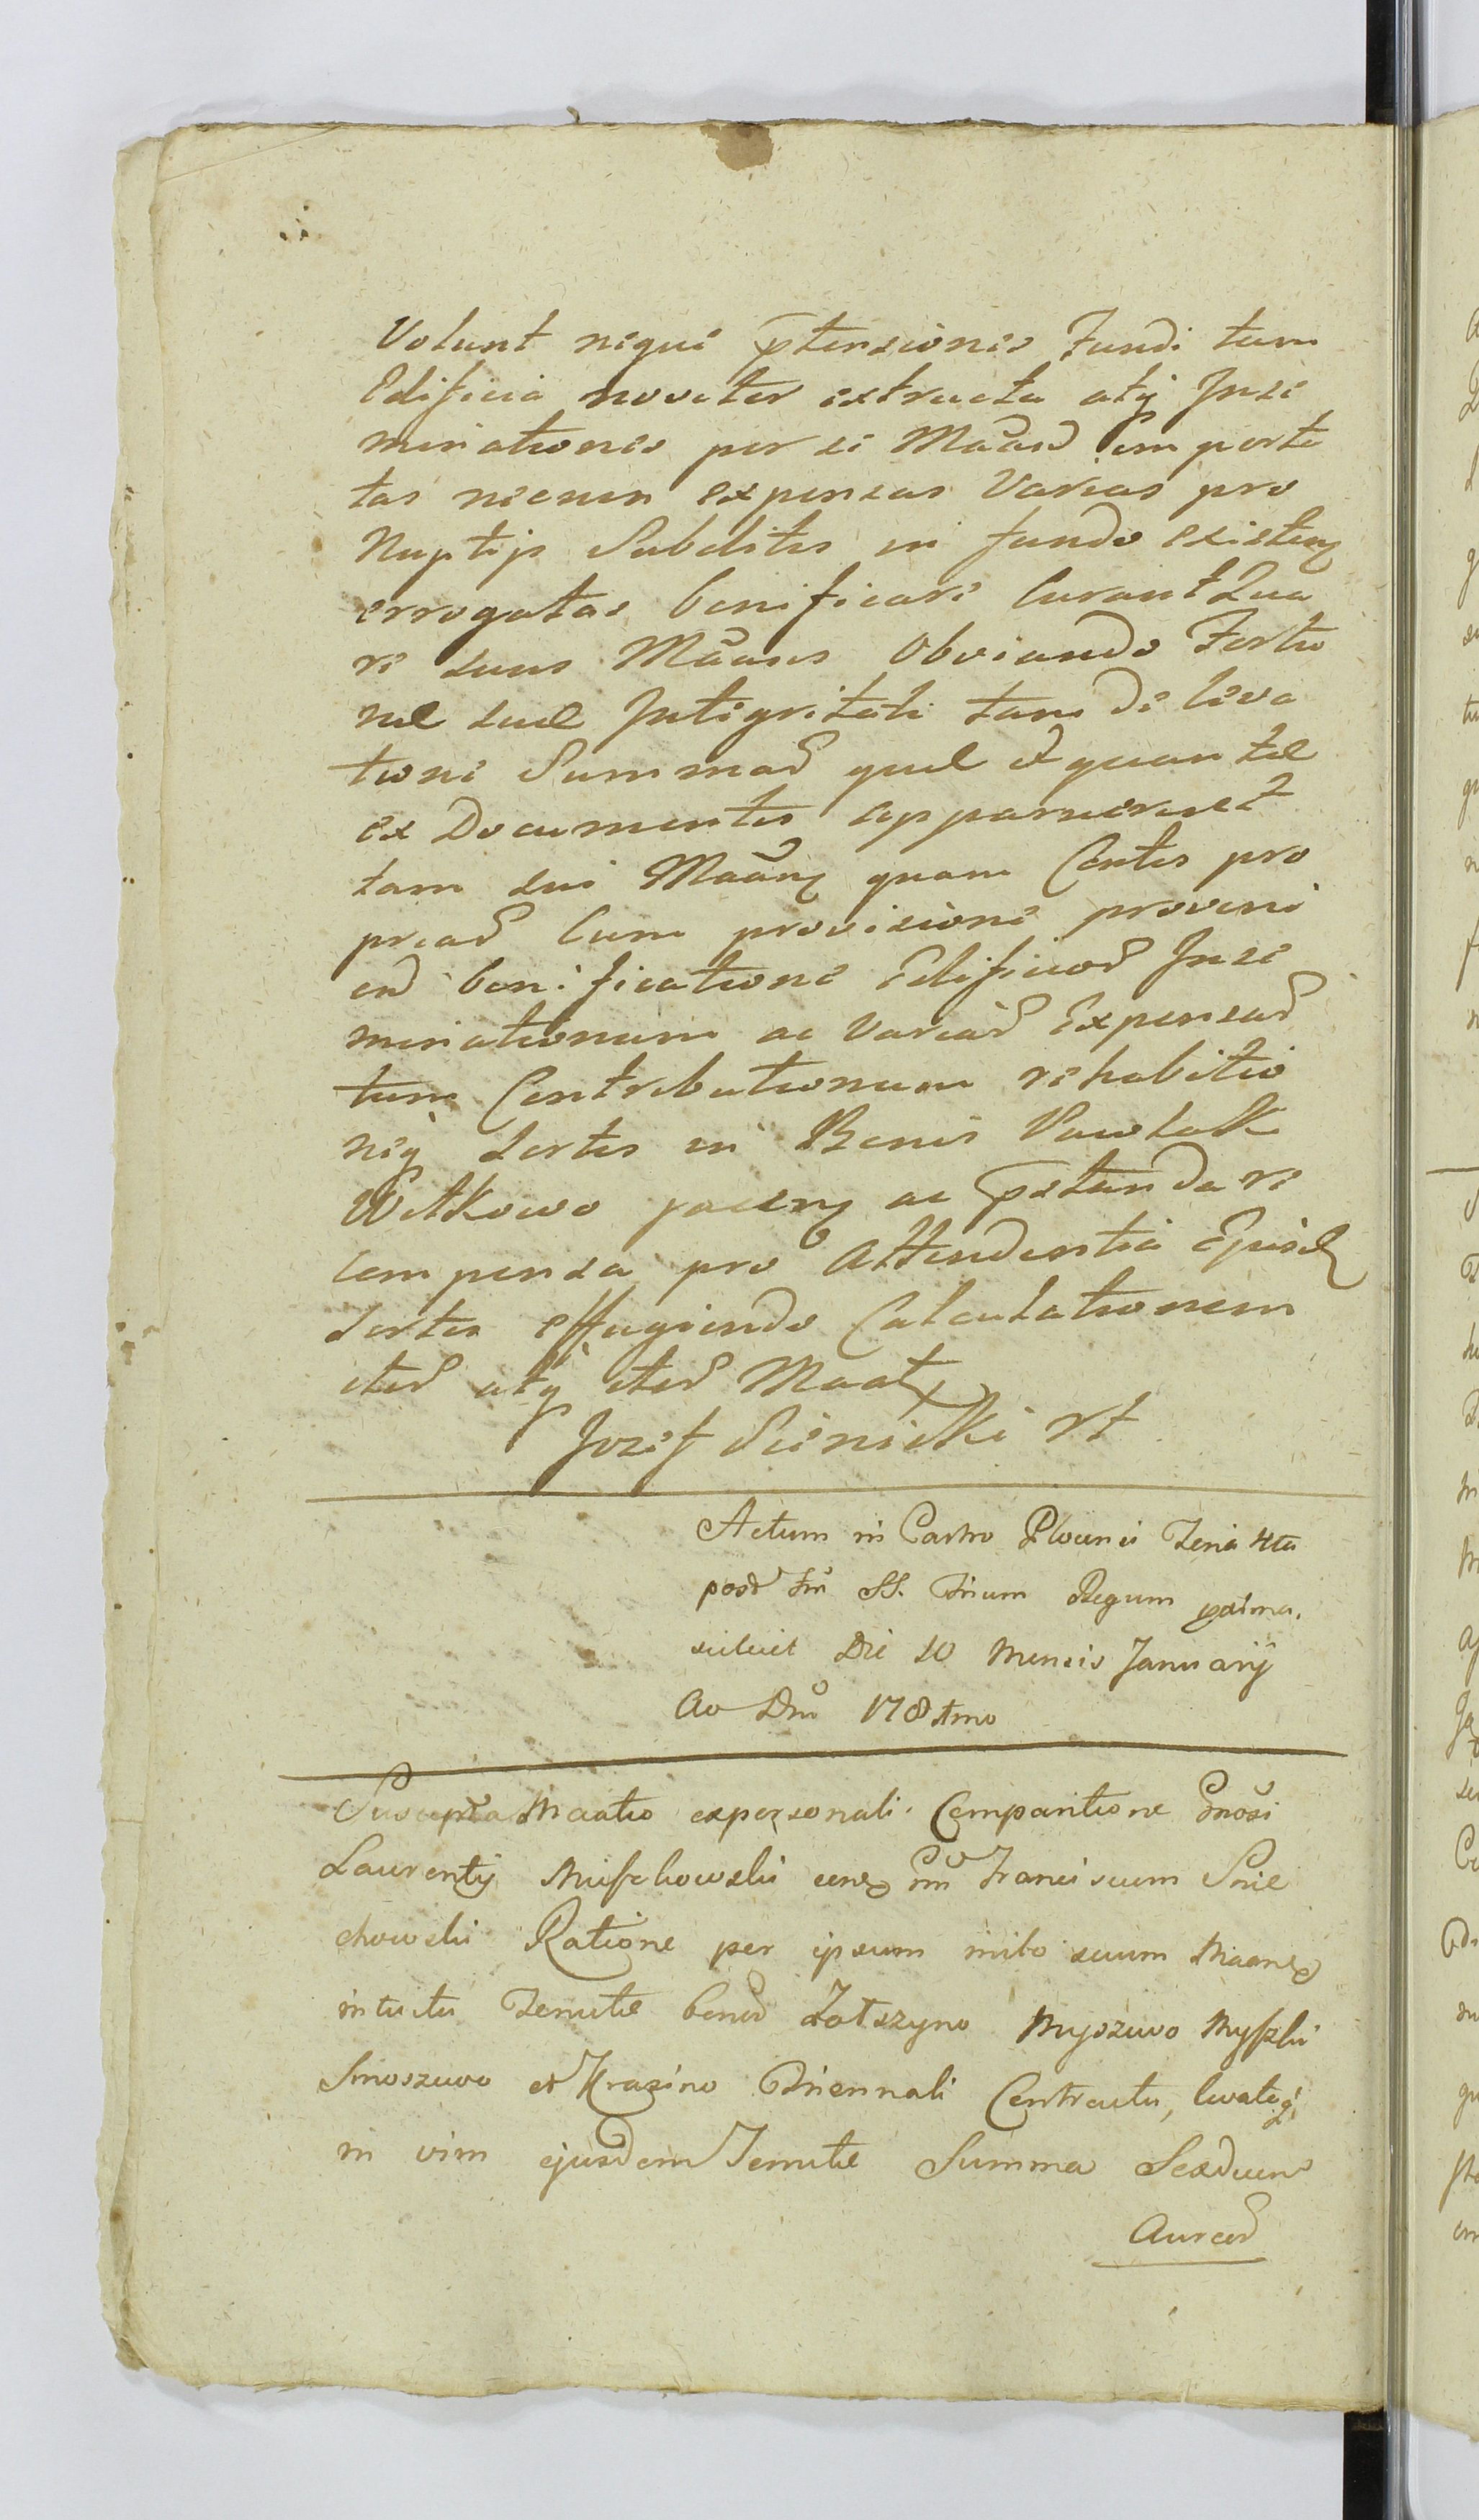 Volunt neque ptensiones Fundi tum
Edificia noviter extructa atq Inse
minationes per se Maand importa
tas necnon expensas Varias pro
Nuptijs Subditis in fundo existen
errogatas bonificare Curant Qua
re suus Maans Obviando Fortu
næ suæ Integritati tam de leva
tione Summad quæ et quantæ
ex Documentis apparuerunt
tam sui Maan quam Contis pro
priad Cum provisione proveni
end bonificatione Edificiod Inse
minationum ac Variad Expensad
tum Contributionum rehabitio
neq Sortis in Bonis Pawlak
Witkowo jacen ac pstanda re
compensa pro Attendentia Ejusd
Sortis effugiendo Calculationem
ited atq ited Maat
Jozef Sienicki rt
Actum in Castro Plocensi Feria 4ta
post Fm SS. Trium Regum pxima,
scilicet Die 10 Mensis Januarij
Ao Dni 1781mo
Suscepta Maatio expersonali Comparitione Gnosi
Laurentij Mischowski cone Gnm Franciscum Snie
chowski Ratione per ipsum mibo suum Maane
intuitu Tenutæ bonod Zotszyno Myszewo Myszki
Smoszewo et Krasino Triennali Contractu, levateq
in vim ejusdem Tenutæ Summa Sexducen
Aureod